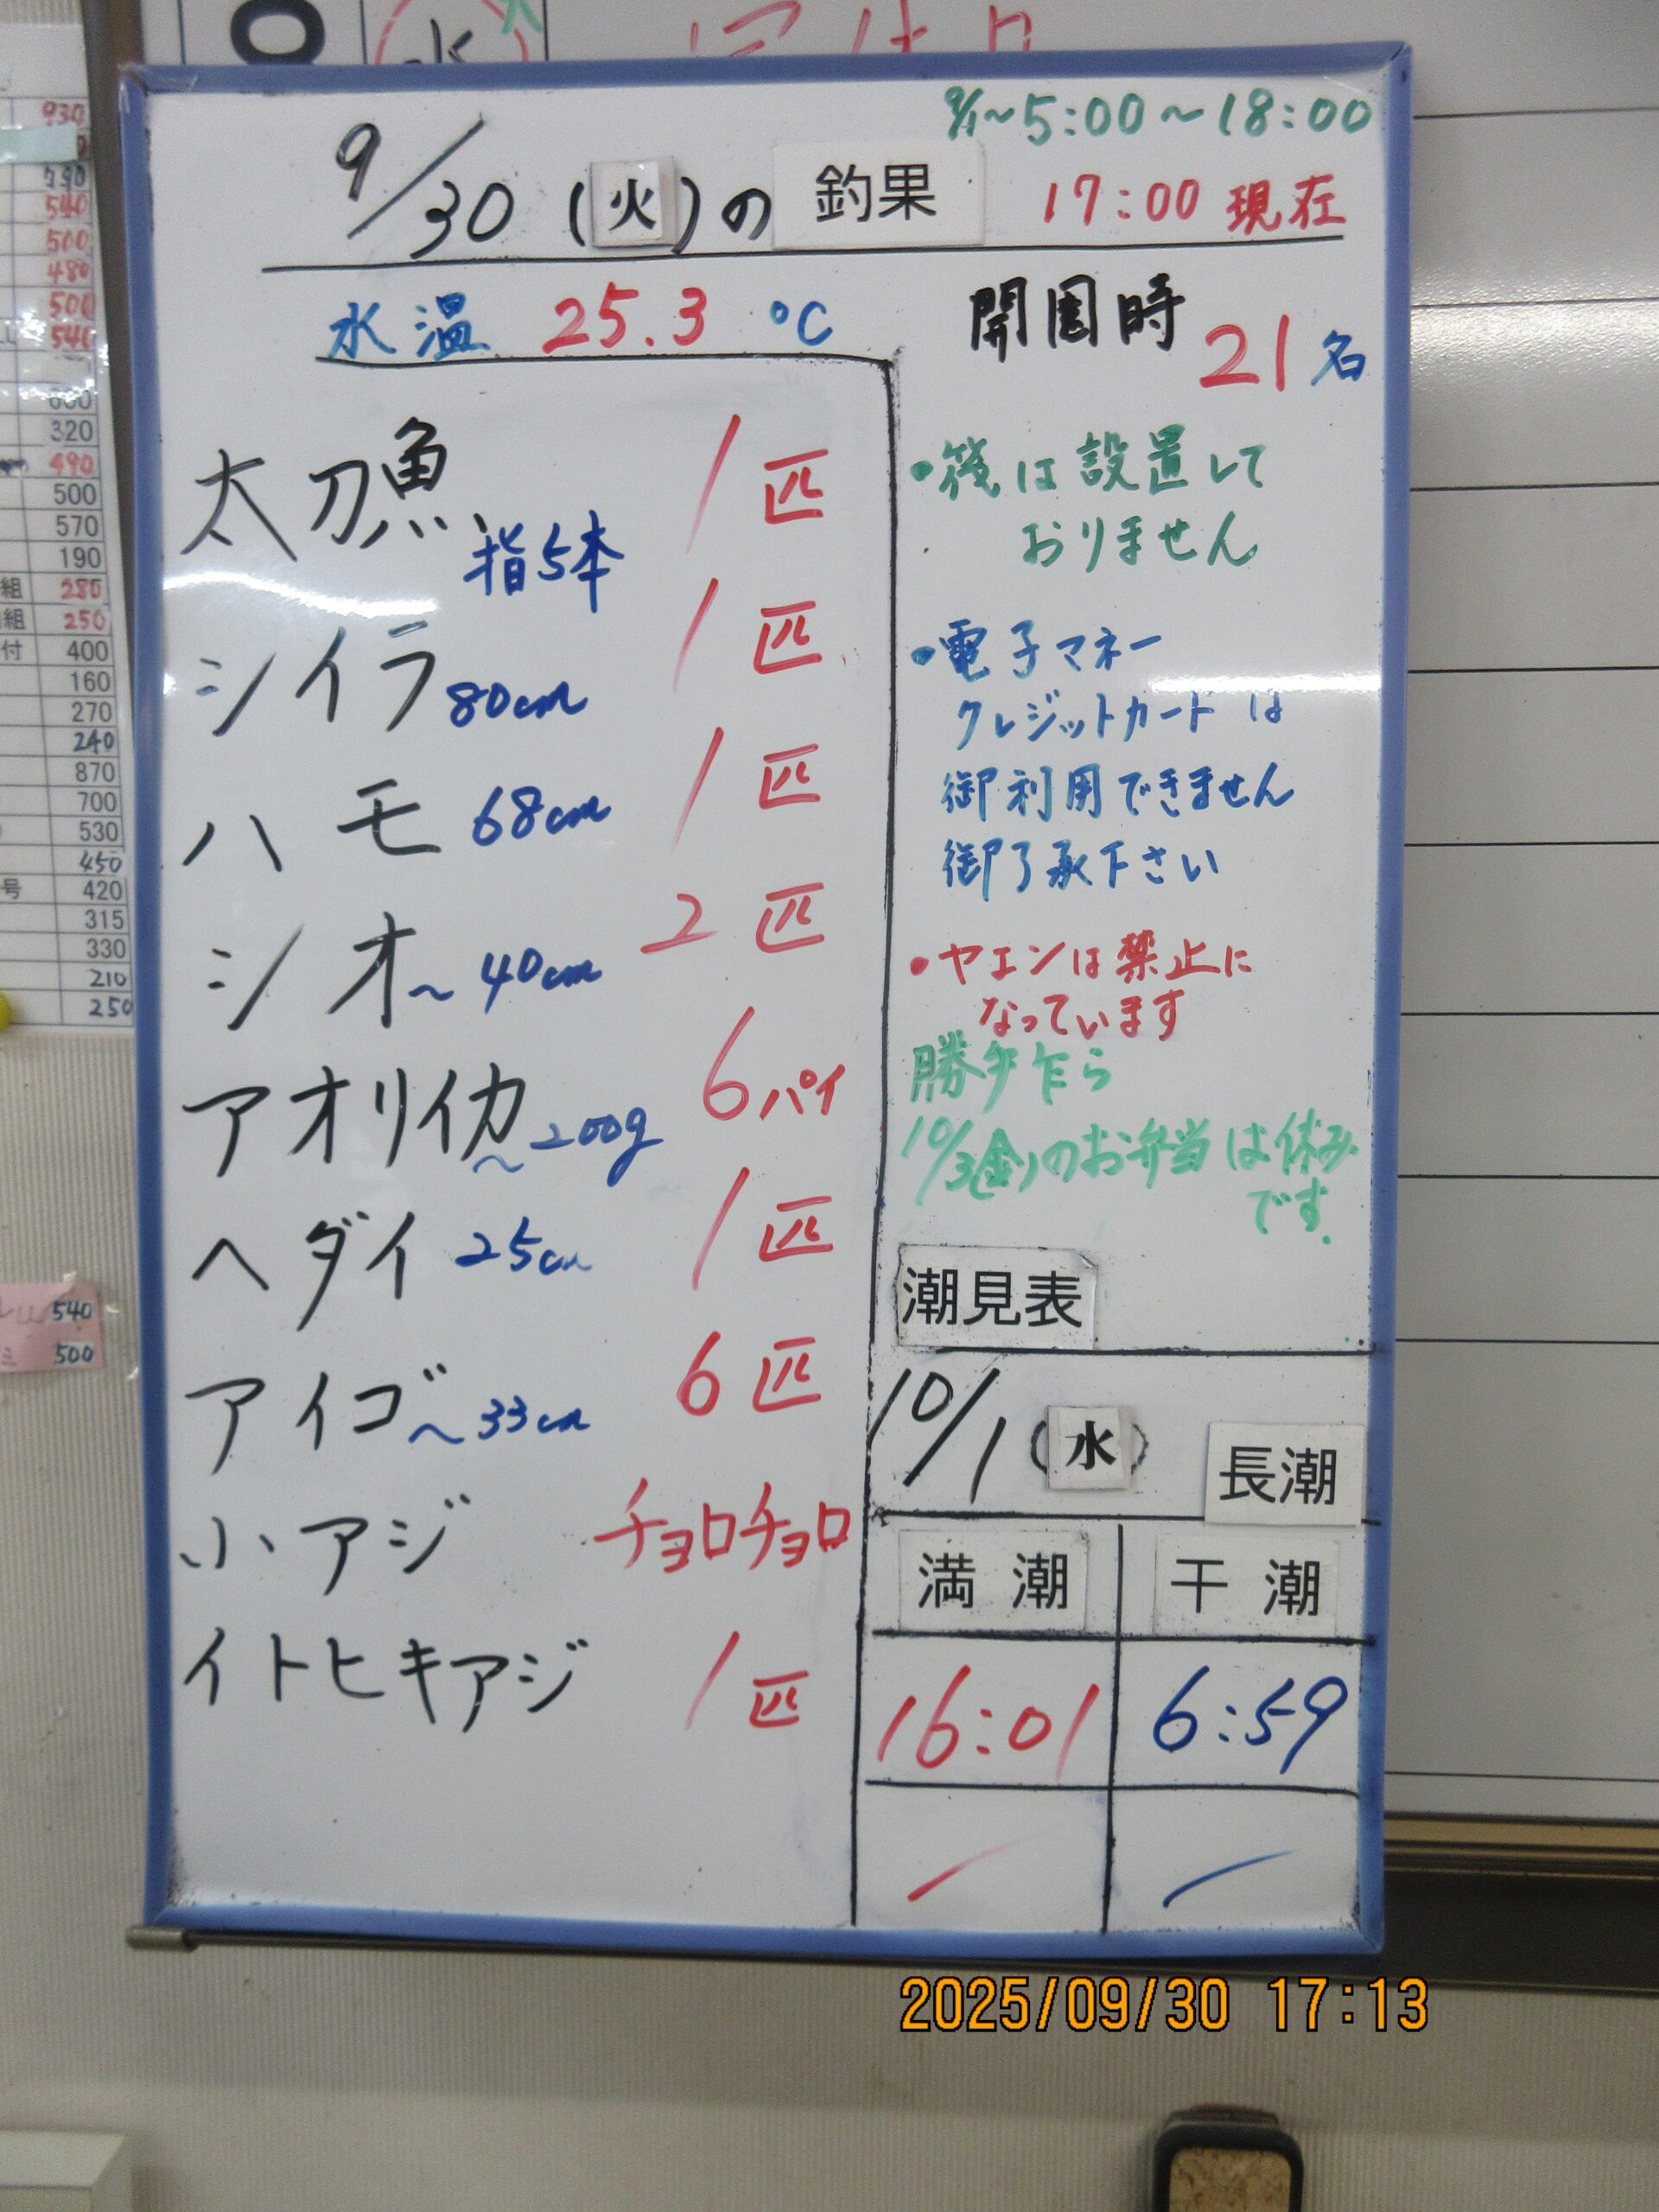 9/1~5:00~18:00
9/30(火)の釣果 17:00 現在
水温 25.3 ℃
開園時 21名
太刀魚 指5本 1匹
シイラ 80cm 1匹
ハモ 68cm 1匹
シオ~40cm 2匹
アオリイカ~200g 6パイ
ヘダイ 25cm 1匹
アイゴ~33cm 6匹
小アジ チョロチョロ
イトヒキアジ 1匹
・筏は設置して
おりません
・電子マネー
クレジットカードは
御利用できません
御了承下さい
・ヤエンは禁止に
なっています
勝手乍ら
10/3(金)のお弁当は休み
です.
潮見表
10/1(水) 長潮
満潮 干潮
16:01 6:59
930
790
540
500
480
500
540
320
490
500
570
190
組 280
組 250
付 400
160
270
240
870
700
530
450
号 420
315
330
210
250
540
ミ 500
2025/09/30 17:13